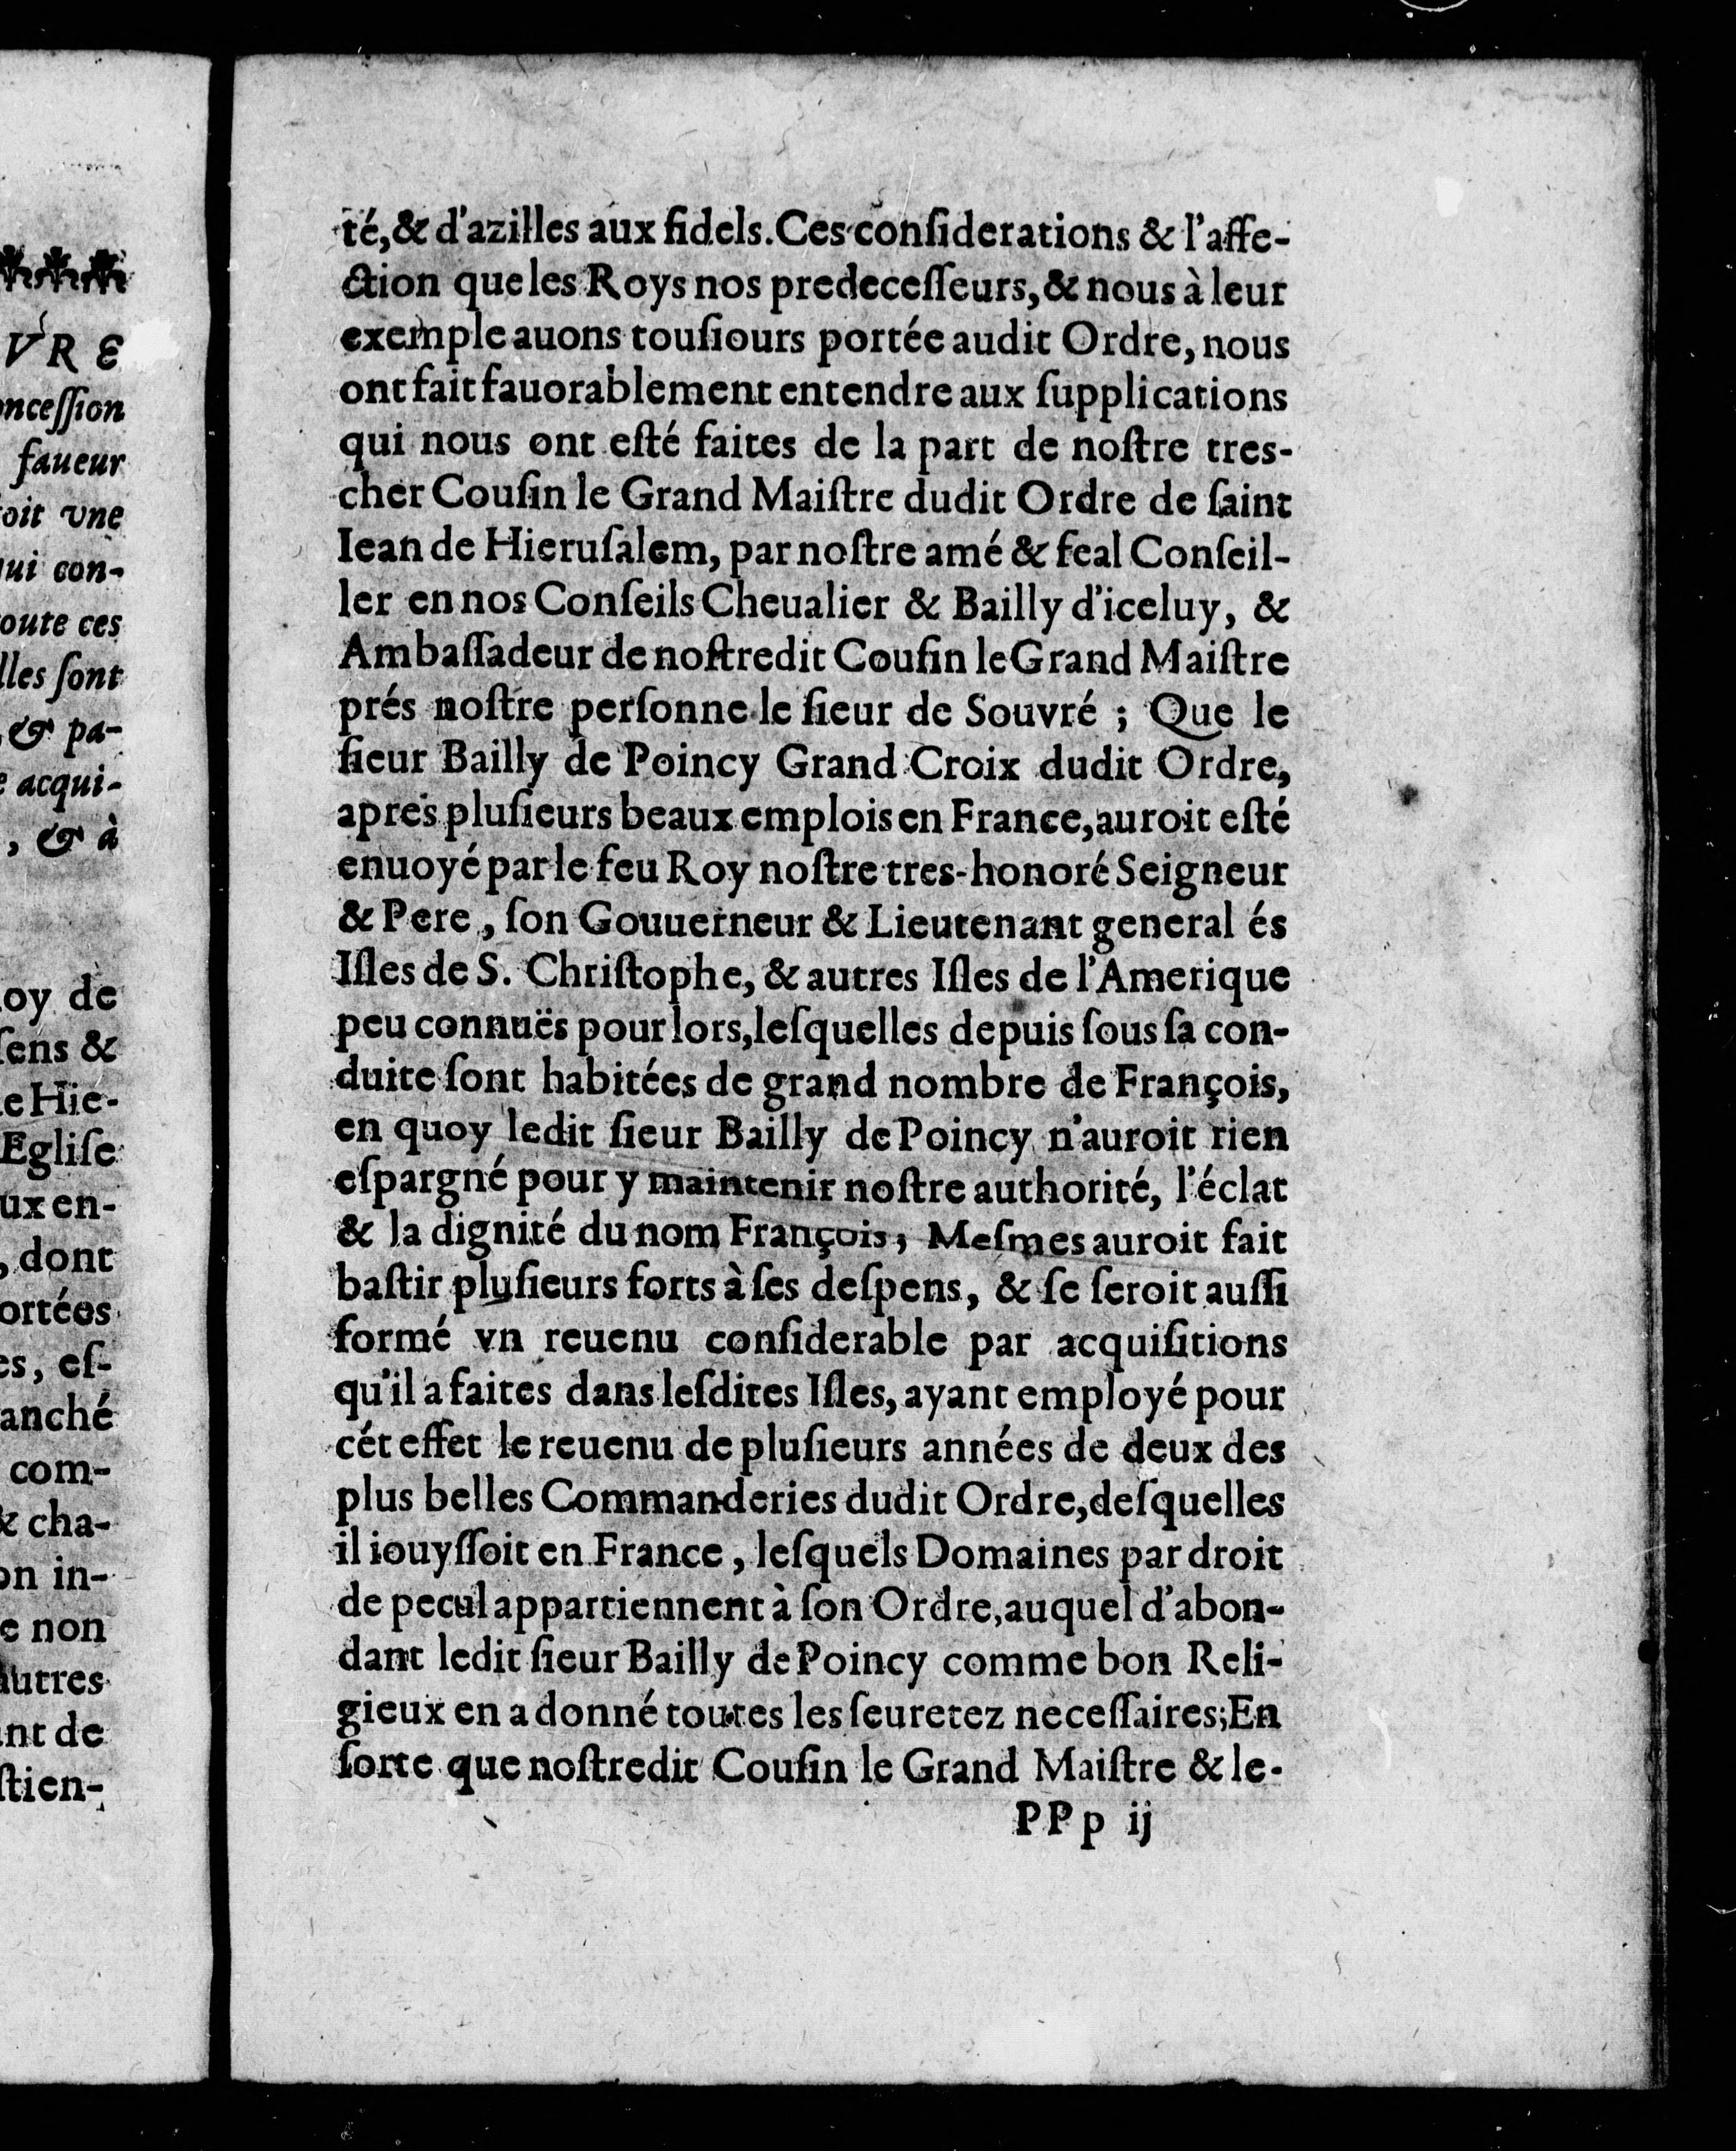 VRE
oncession
faueur
oit vne
qui con-
toute ces
lles ſont
, & pa-
e acqui-
, & à
oy de
ſens &
e Hie-
Egliſe
ux en-
, dont
ortées
es, eſ-
anché
com-
& cha-
on in-
e non
autres
nt de
ſtien-
té, & d'azilles aux fidels. Ces conſiderations & l'affe-
ction que les Roys nos predeceſſeurs, & nous à leur
exemple auons touſiours portée audit Ordre, nous
ont fait fauorablement entendre aux ſupplications
qui nous ont eſté faites de la part de noſtre tres-
cher Couſin le Grand Maiſtre dudit Ordre de ſaint
Iean de Hieruſalem, par noſtre amé & feal Conſeil-
ler en nos Conſeils Cheualier & Bailly d'iceluy, &
Ambaſſadeur de noſtredit Couſin le Grand Maiſtre
prés noſtre perſonne le ſieur de Souvré ; Que le
ſieur Bailly de Poincy Grand Croix dudit Ordre,
apres pluſieurs beaux emplois en France, auroit eſté
enuoyé par le feu Roy noſtre tres-honoré Seigneur
& Pere, ſon Gouuerneur & Lieutenant general és
Iſles de S. Chriſtophe, & autres Iſles de l'Amerique
peu connuës pour lors, leſquelles depuis ſous ſa con-
duite ſont habitées de grand nombre de François,
en quoy ledit ſieur Bailly de Poincy n'auroit rien
eſpargné pour y maintenir noſtre authorité, l'éclat
& la dignité du nom François, Meſmes auroit fait
baſtir pluſieurs forts à ſes deſpens, & ſe ſeroit auſſi
formé vn reuenu conſiderable par acquiſitions
qu'il a faites dans leſdites Iſles, ayant employé pour
cét effet le reuenu de pluſieurs années de deux des
plus belles Commanderies dudit Ordre, deſquelles
il iouyſſoit en France, leſquels Domaines par droit
de pecul appartiennent à ſon Ordre, auquel d'abon-
dant ledit ſieur Bailly de Poincy comme bon Reli-
gieux en a donné toutes les ſeuretez neceſſaires; En
ſorte que noſtredit Couſin le Grand Maiſtre & le-
PPp ij